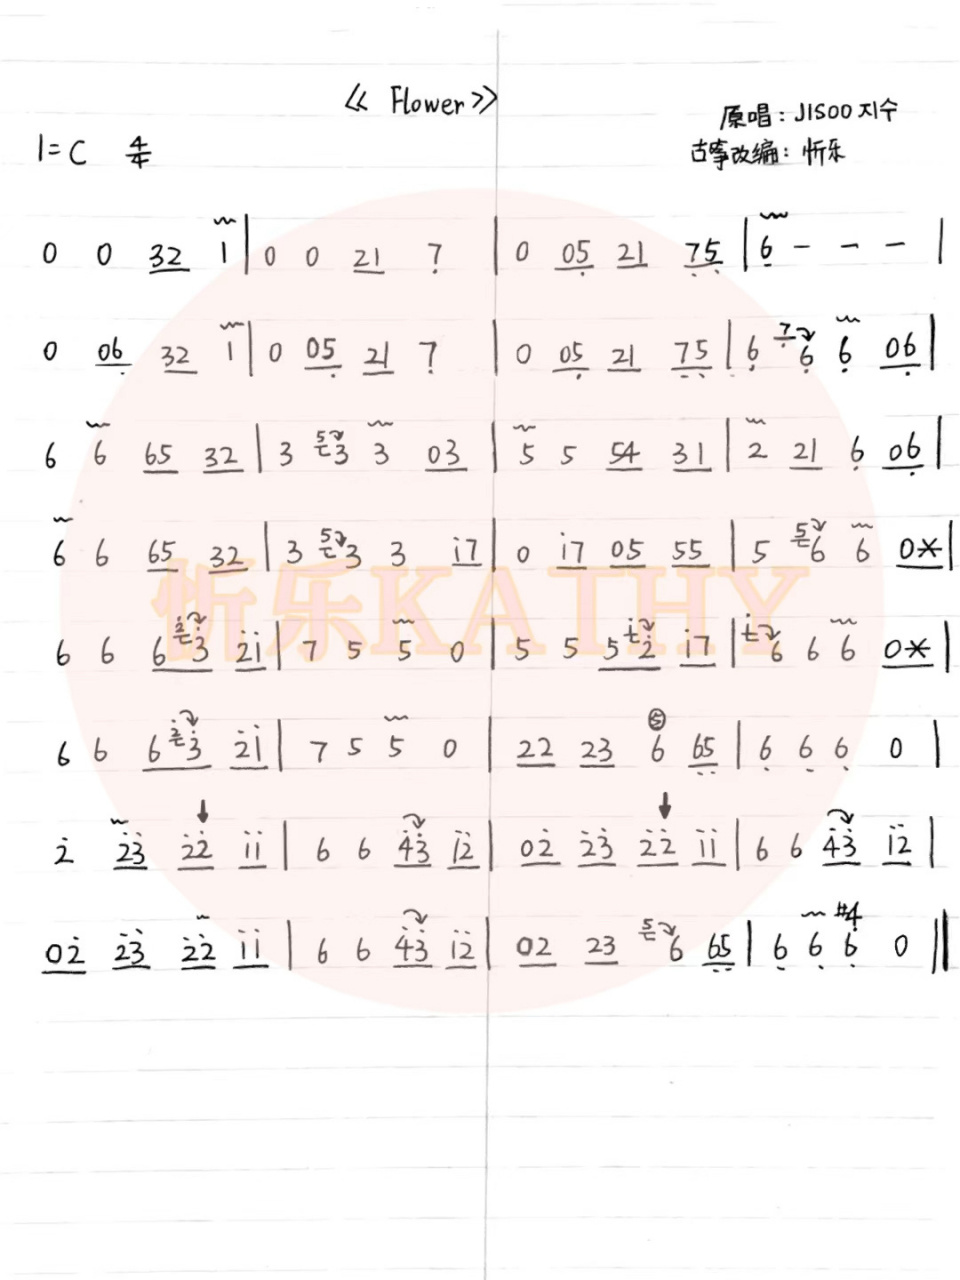 《 Flower》
原唱：JISOO 지수
1=C 4/4
古筝改编：忻乐
0 0 32 1 | 0 0 21 7 | 0 05 21 75 | 6 - - - |
0 06 32 1 | 0 05 21 7 | 0 05 21 75 | 6 7 6 6 06 |
6 6 65 32 | 3 5 3 3 03 | 5 5 54 31 | 2 21 6 06 |
6 6 65 32 | 3 5 3 3 i7 | 0 i7 05 55 | 5 5 6 6 0* |
6 6 6 2 3 2i | 7 5 5 0 | 5 5 5 i 2 i7 | i 6 6 6 0* |
6 6 6 2 3 2i | 7 5 5 0 | 22 23 ⑤ 6 65 | 6 6 6 0 |
2 23 22 ii | 6 6 43 i2 | 02 23 22 ii | 6 6 43 i2 |
02 23 22 ii | 6 6 43 i2 | 02 23 5 6 65 | 6 6 #4 6 0 ||
忻乐KATHY